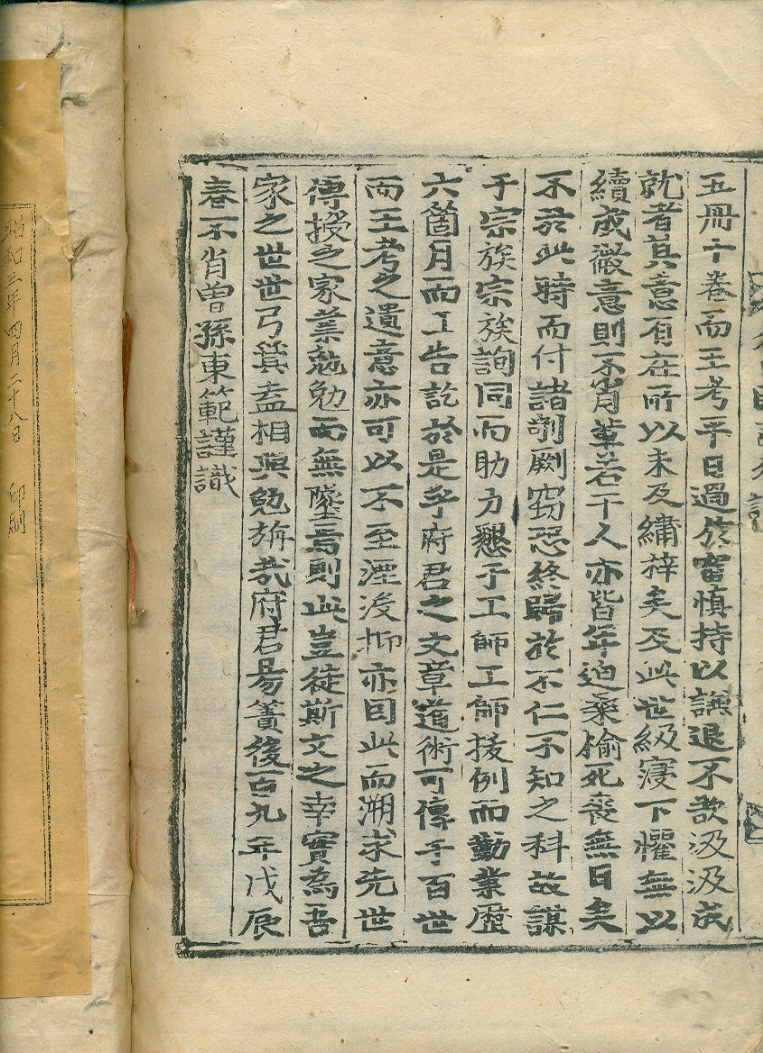 五冊十卷而王考平日過於審慎持以謙退不欲汲汲成
就者其意有在所以未及繡梓矣及此世級寖下懼無以
續成微意則不肖輩若干人亦皆年迫桑榆死喪無日矣
不於此時而付諸剞劂窃恐終歸於不仁不知之科故謀
于宗族宗族詢同而助力懇于工師工師援例而勤業歷
六箇月而工告訖於是乎府君之文章道術可傳于百世
而王考之遺意亦可以不至湮没抑亦因此而溯求先世
傳授之家業勉而無墜焉則此豈徒斯文之幸實爲吾
家之世世弓箕盍相與勉旃哉府君易簀後百九年戊辰
春不肖曾孫東範謹識
昭和三年四月二十八日 印刷